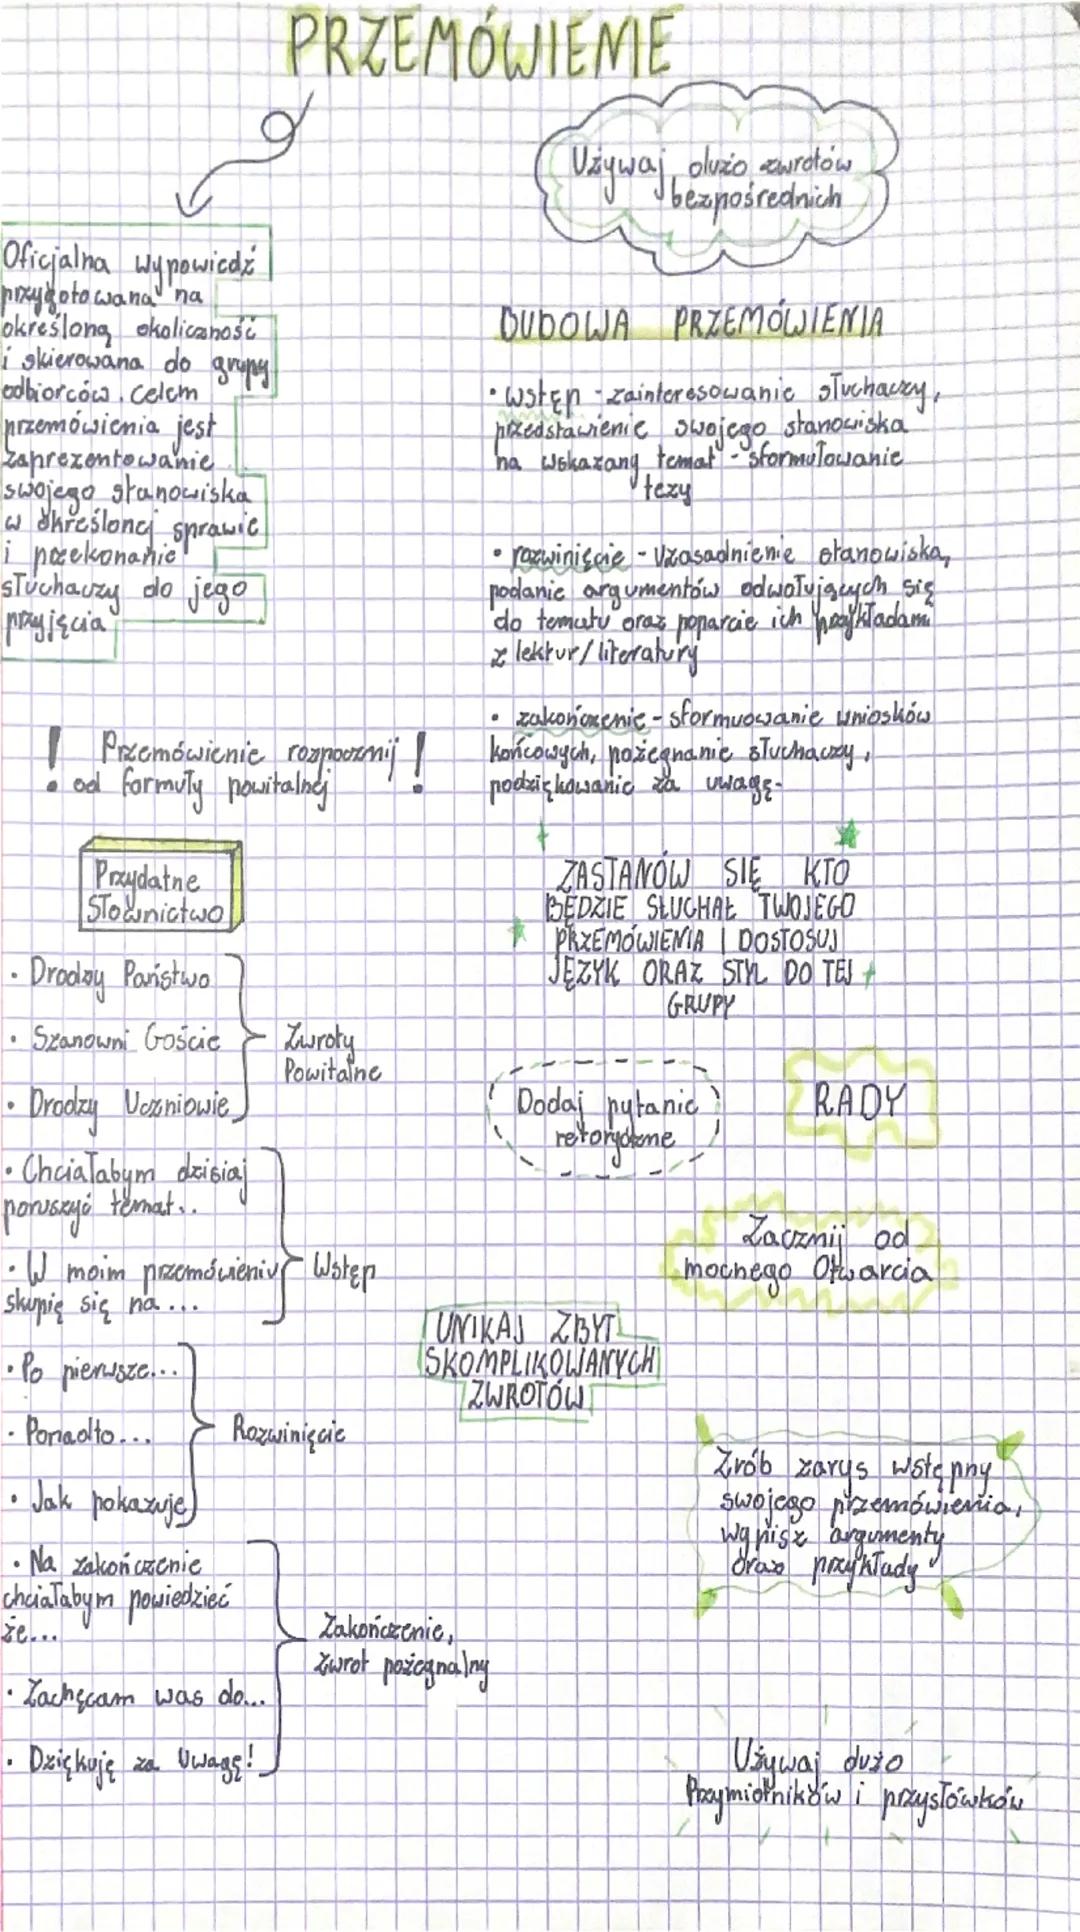 PRZEMÓWIENIE
Używaj dużo zwrotów
bezpośrednich
Oficjalna wypowiedź
przygotowana na
określoną okoliczność
i skierowana do grupy
odbiorców. Celem
przemówienia jest
zaprezentowanie
swojego stanowiska
w określonej sprawie
i przekonanie
słuchaczy do jego
przyjęcia
BUDOWA PRZEMÓWIENIA
• wstęp - zainteresowanie słuchaczy,
przedstawienie swojego stanowiska
na wskazany temat - sformułowanie
tezy
• rozwinięcie - uzasadnienie stanowiska,
podanie argumentów odwołujących się
do tematu oraz poparcie ich przykładami
z lektur/literatury
• zakończenie - sformuowanie wniosków
końcowych, pożegnanie słuchaczy,
podziękowanie za uwagę.
! Przemówienie rozpocznij !
od formuły powitalnej
ZASTANÓW SIĘ KTO
BĘDZIE SŁUCHAŁ TWOJEGO
PRZEMÓWIENIA I DOSTOSUJ
JĘZYK ORAZ STYL DO TEJ
GRUPY
Przydatne
Słownictwo
• Drodzy Państwo
• Szanowni Goście
• Drodzy Uczniowie
Zwroty
Powitalne
• Chciałabym dzisiaj
poruszyć temat..
• W moim przemówieniu
skupię się na...
Wstęp
• Po pierwsze...
• Ponadto...
• Jak pokazuje
Rozwinięcie
• Na zakończenie
chciałabym powiedzieć
że...
• Zachęcam was do...
• Dziękuję za Uwagę!
Zakończenie,
zwrot pożegnalny
Dodaj pytanie
retoryczne
RADY
Zacznij od
mocnego Otwarcia
UNIKAJ ZBYT
SKOMPLIKOWANYCH
ZWROTÓW
Zrób zarys wstępny
swojego przemówienia,
wypisz argumenty
oraz przykłady
Używaj dużo
Przymiotników i przysłówków